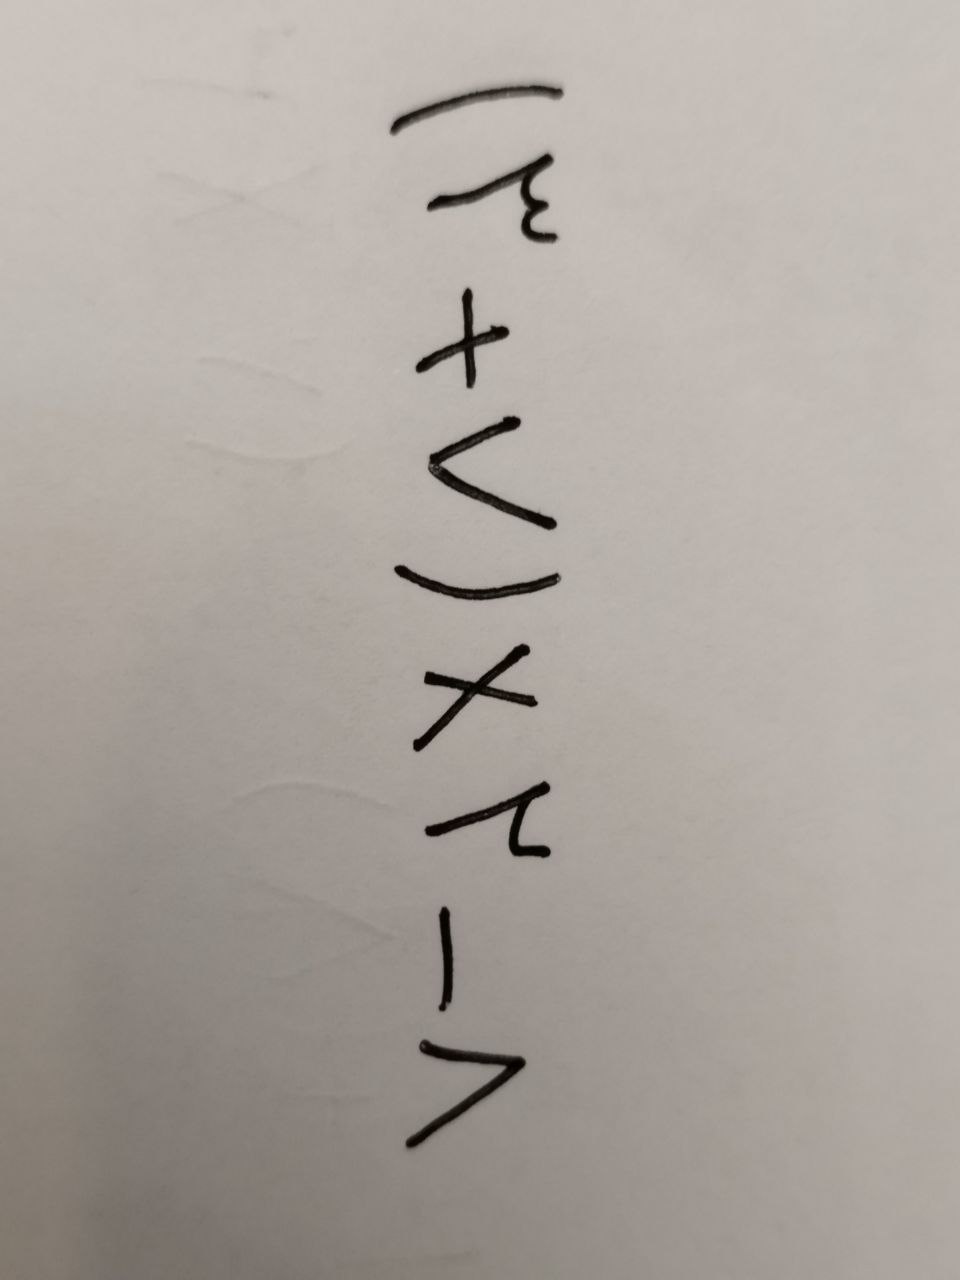 (۳+۷)×۲-۸